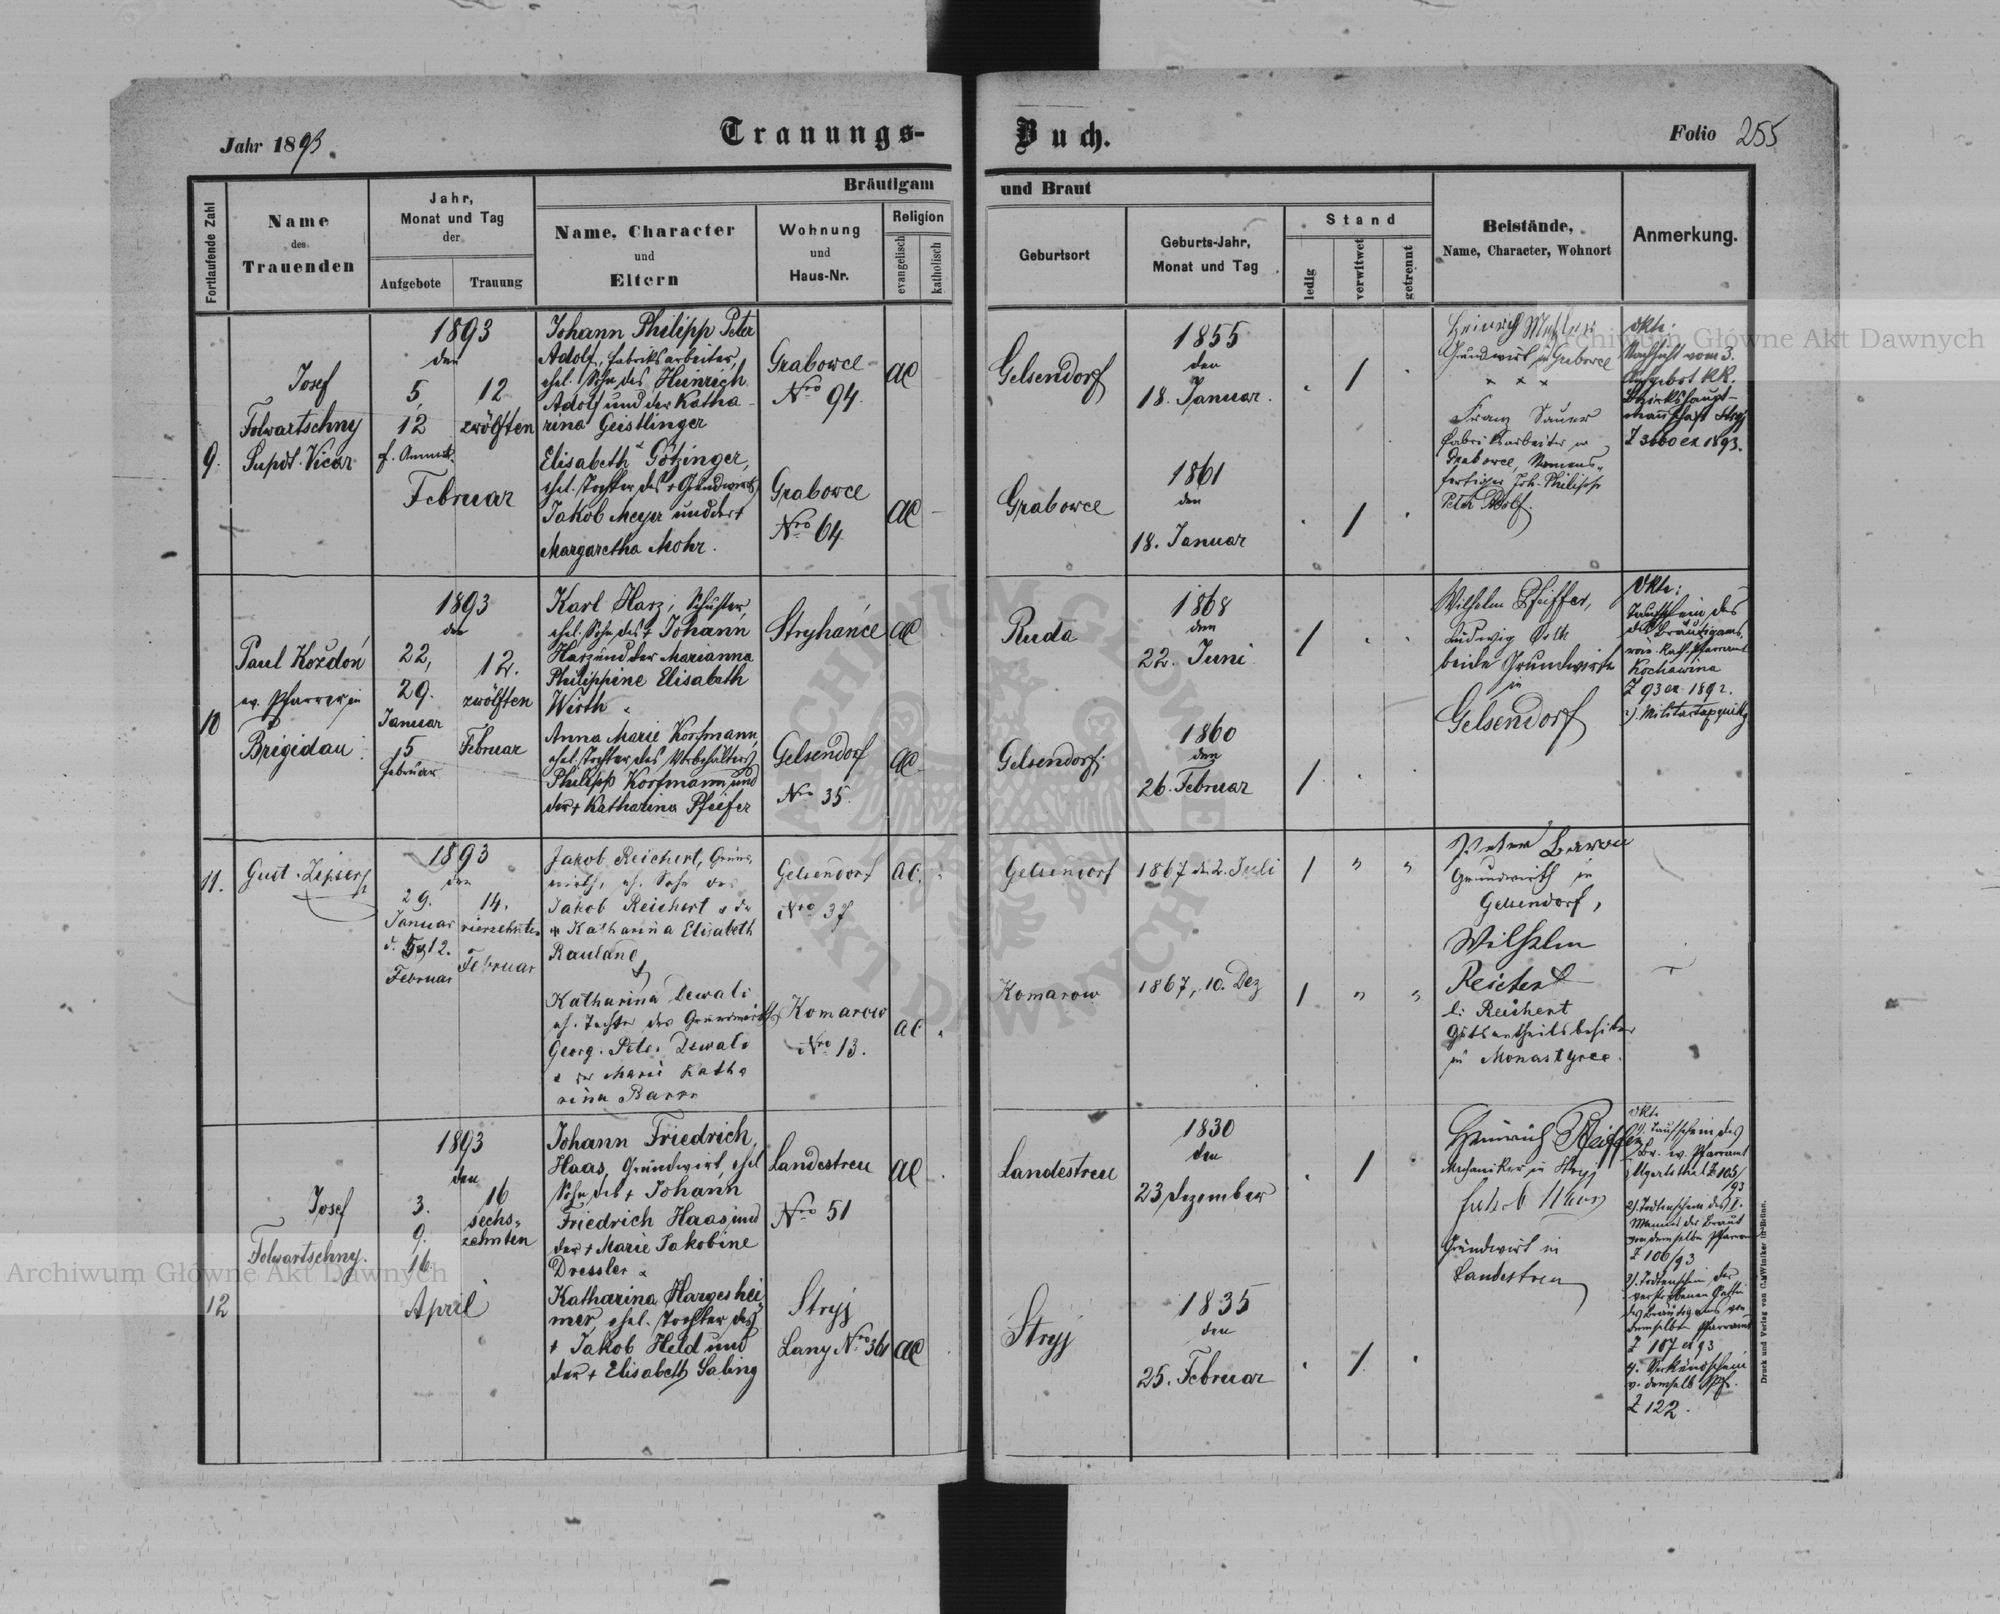 Jahr 1893.
Trauungs-Buch.
Folio 255
Fortlaufende Zahl
Name
des
Trauenden
Jahr,
Monat und Tag
der
Aufgebote
Trauung
Bräutigam
und Braut
Name, Character
und
Eltern
Wohnung
und
Haus-Nr.
Religion
evangelisch
katholisch
Geburtsort
Geburts-Jahr,
Monat und Tag
Stand
ledig
verwitwet
getrennt
Beistände,
Name, Character, Wohnort
Anmerkung.
9.
Josef
Folwartschny
Supdt. Vicar
1893
den
5,
12
Februar
12
zwölften
Johann Philipp Peter
Adolf, Fabriksarbeiter,
ehel. Sohn des Heinrich
Adolf und der Katha-
rina Geistlinger
Elisabeth Götzinger,
ehel. Tochter des + Grundwirts
Jakob Meyer und der +
Margaretha Mohr.
Grabowce
Nro 94.
Grabowce
Nro 64
AC
AC
Gelsendorf
Grabowce
1855
den
18. Januar.
1861
den
18. Januar
Heinrich
Grundwirt in Grabowce
× × ×
Franz Sauer
Fabriksarbeiter in
Grabowce, Namens-
fertiger Joh. Philipp
Peter Adolf.
Nachsicht vom 3.
Aufgebot KK.
Bezirkshaupt-
mannschaft Stryj
Z 3660 ex 1893.
10
Paul Koždoń
ev. Pfarrer in
Brigidau
1893
den
22,
29.
Januar
5
Februar
12.
zwölften
Februar
Karl Harz, Schuster,
ehel. Sohn des + Johann
Harz und der Marianna
Philippine Elisabeth
Wirth
Anna Marie Korfmann
ehel. Tochter des
Philipp Korfmann und
der + Katharina Pfeifer
Stryhańce
Gelsendorf
Nro 35.
AC
AC
Ruda
Gelsendorf.
1868
den
22. Juni
1860
den
26. Februar
Wilhelm Pfeiffer,
Ludwig
beide Grundwirte
in
Gelsendorf
Taufschein des
Bräutigams
Kath. Pfarramt
Kochawina
Z 93 ex 1892.
11.
Gust. Zipser
1893
den
29.
Januar
12.
Februar
14.
vierzehnten
Februar
Jakob Reichert, Grund-
wirth, eh. Sohn des
Jakob Reichert u der
Katharina Elisabeth
Katharina Dewald
eh. Tochter des Grundwirths
Georg Peter Dewald
u der Marie Katha
rina
Gelsendorf
Nro 37
Komarow
Nro 13.
AC.
AC
Gelsendorf
Komarow
1867 den 2. Juli
1867, 10. Dez
Peter
Grundwirth in
Gelsendorf,
Wilhelm
Reichert
Reichert
Gutsantheilsbesitzer
in
12
Josef
Folwartschny.
1893
den
3.
9.
16.
April
16
sechs-
zehnten
Johann Friedrich
Haas, Grundwirt, ehel
Sohn des + Johann
Friedrich Haas und
der + Marie Jakobine
Dressler
Katharina Hargeshei-
mer, ehel. Tochter des
+ Jakob Held und
der + Elisabeth Saling
Landestreu
Nro 51
Stryj
Lany Nro 361
AC
AC
Landestreu
Stryj
1830
den
23 Dezember
1835
den
25. Februar
Heinrich Pfeiffer
Mechaniker in Stryj
Grundwirt in
Landestreu
1). Taufschein des
Br. ev. Pfarramt
Ugartsthal Z 105/
93
2). Todtenschein des I.
Mannes der Braut
von demselben Pfarramt
Z 106/93
3). Todtenschein der
verstorbenen Gattin
des Bräutigams von
demselben Pfarramt
Z 107 ex 93
4. Verkündschein
v. demselb. Pf.
Z 122.
Druck und Verlag von C. Winiker in Brünn.
Archiwum Główne Akt Dawnych
Archiwum Główne Akt Dawnych
ARCHIWUM GŁÓWNE AKT DAWNYCH